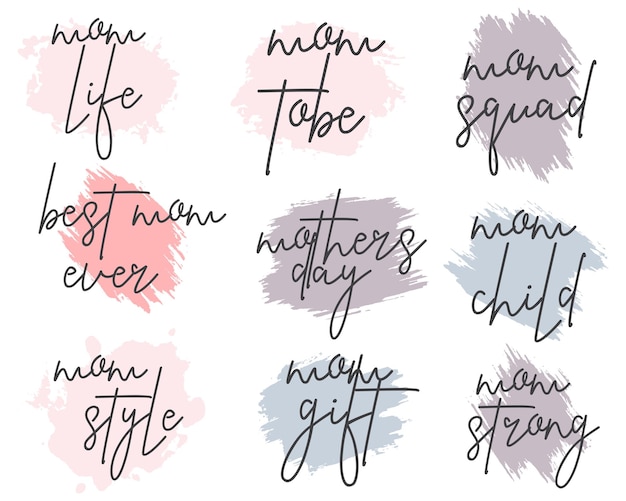 mom
life
mom
tobe
mom
squad
best mom
ever
mothers
day
mom
child
mom
style
mom
gift
mom
strong